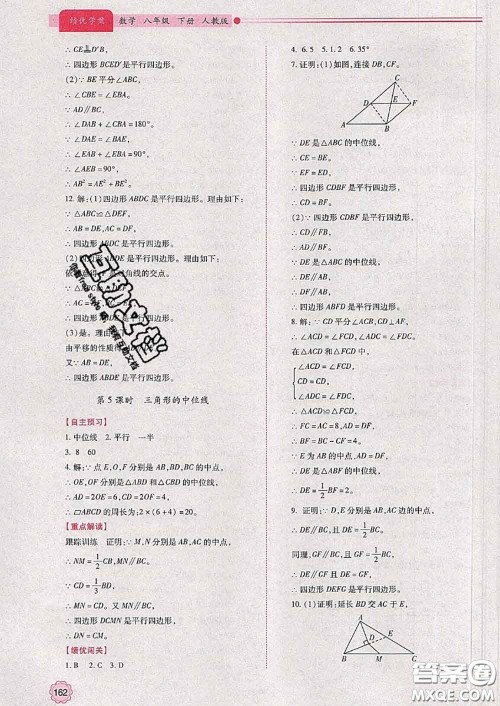 绩优学案 数学 八年级 下册 人教版
∴四边形BCED′是平行四边形.
(2)∵BE平分∠ABC,
∴∠CBE=∠EBA.
∴∠DAB+∠CBA=180°.
∵∠DAE=∠BAE,
∴∠EAB+∠EBA=90°,
∴∠AEB=90°,
∴AB²=AE²+BE².
12. 解:(1)四边形ABDC是平行四边形. 理由如下:
∵△ABC≌△DEF,
∴AB=DE,AC=DF,
∴四边形
(2)四边形
∴四边形
(3)是。理由
由平移的性质
又∵AB=DE,
∴四边形ABDE是平行四边形.
第5课时 三角形的中位线
【自主预习】
1. 中位线 2. 平行 一半
3. 8 60
4. 解:∵点E,O,F分别为AB,BD,BC的中点,
∴OE,OF分别是△ABD和△DBC的中位线,
∴AD=2OE=6,CD=2OF=4,
∴▱ABCD的周长为:2×(6+4)=20.
【重点解读】
跟踪训练 证明:∵M,N分别为AB,AC的中点,
∴NM=1/2CB,MN∥BC.
∵CD=1/3BD,
∴MN=CD. 又∵MN∥BC,
∴四边形DCMN是平行四边形,
∴DN=CM.
【绩优闯关】
1. B 2. C 3. D
162
4. 6. 5 5. 1. 2 6. 40
7. 证明:(1)如图,连接DB,CF.
C
D E F
A B
∵DE是△ABC的中位线,
∴CE=BE.
∵EF=ED,
∴四边形CDBF是平行四边形,
∴CD=BF.
(2)∵四边形CDBF是平行四边形.
∴CD∥FB,
∴AD∥BF.
∵DE是△ABC的中位线,
∴DE∥AB,
∴DF∥AB,
∴四边形ABFD是平行四边形.
8. 解:∵CD平分∠ACB,CD⊥AF,
∴∠ACD=∠FCD,∠CDA=∠CDF.
在△ACD和△FCD中,
∠ACD=∠FCD,
CD=CD,
∠CDA=∠CDF,
∴△ACD≌△FCD,
∴FC=AC=8,DA=DF,
∴BF=BC-CF=12-8=4.
∵E为AB的中点,
∴DE=1/2BF=2.
9. 证明:∵D,E分别是AB,AC的中点,
∴DE∥BC,且DE=1/2BC.
同理,GF∥BC,且GF=1/2BC.
∴DE∥GF且DE=GF,
∴四边形DEFG是平行四边形.
10. (1)证明:延长BD交AC于E.
A
D E
B M C